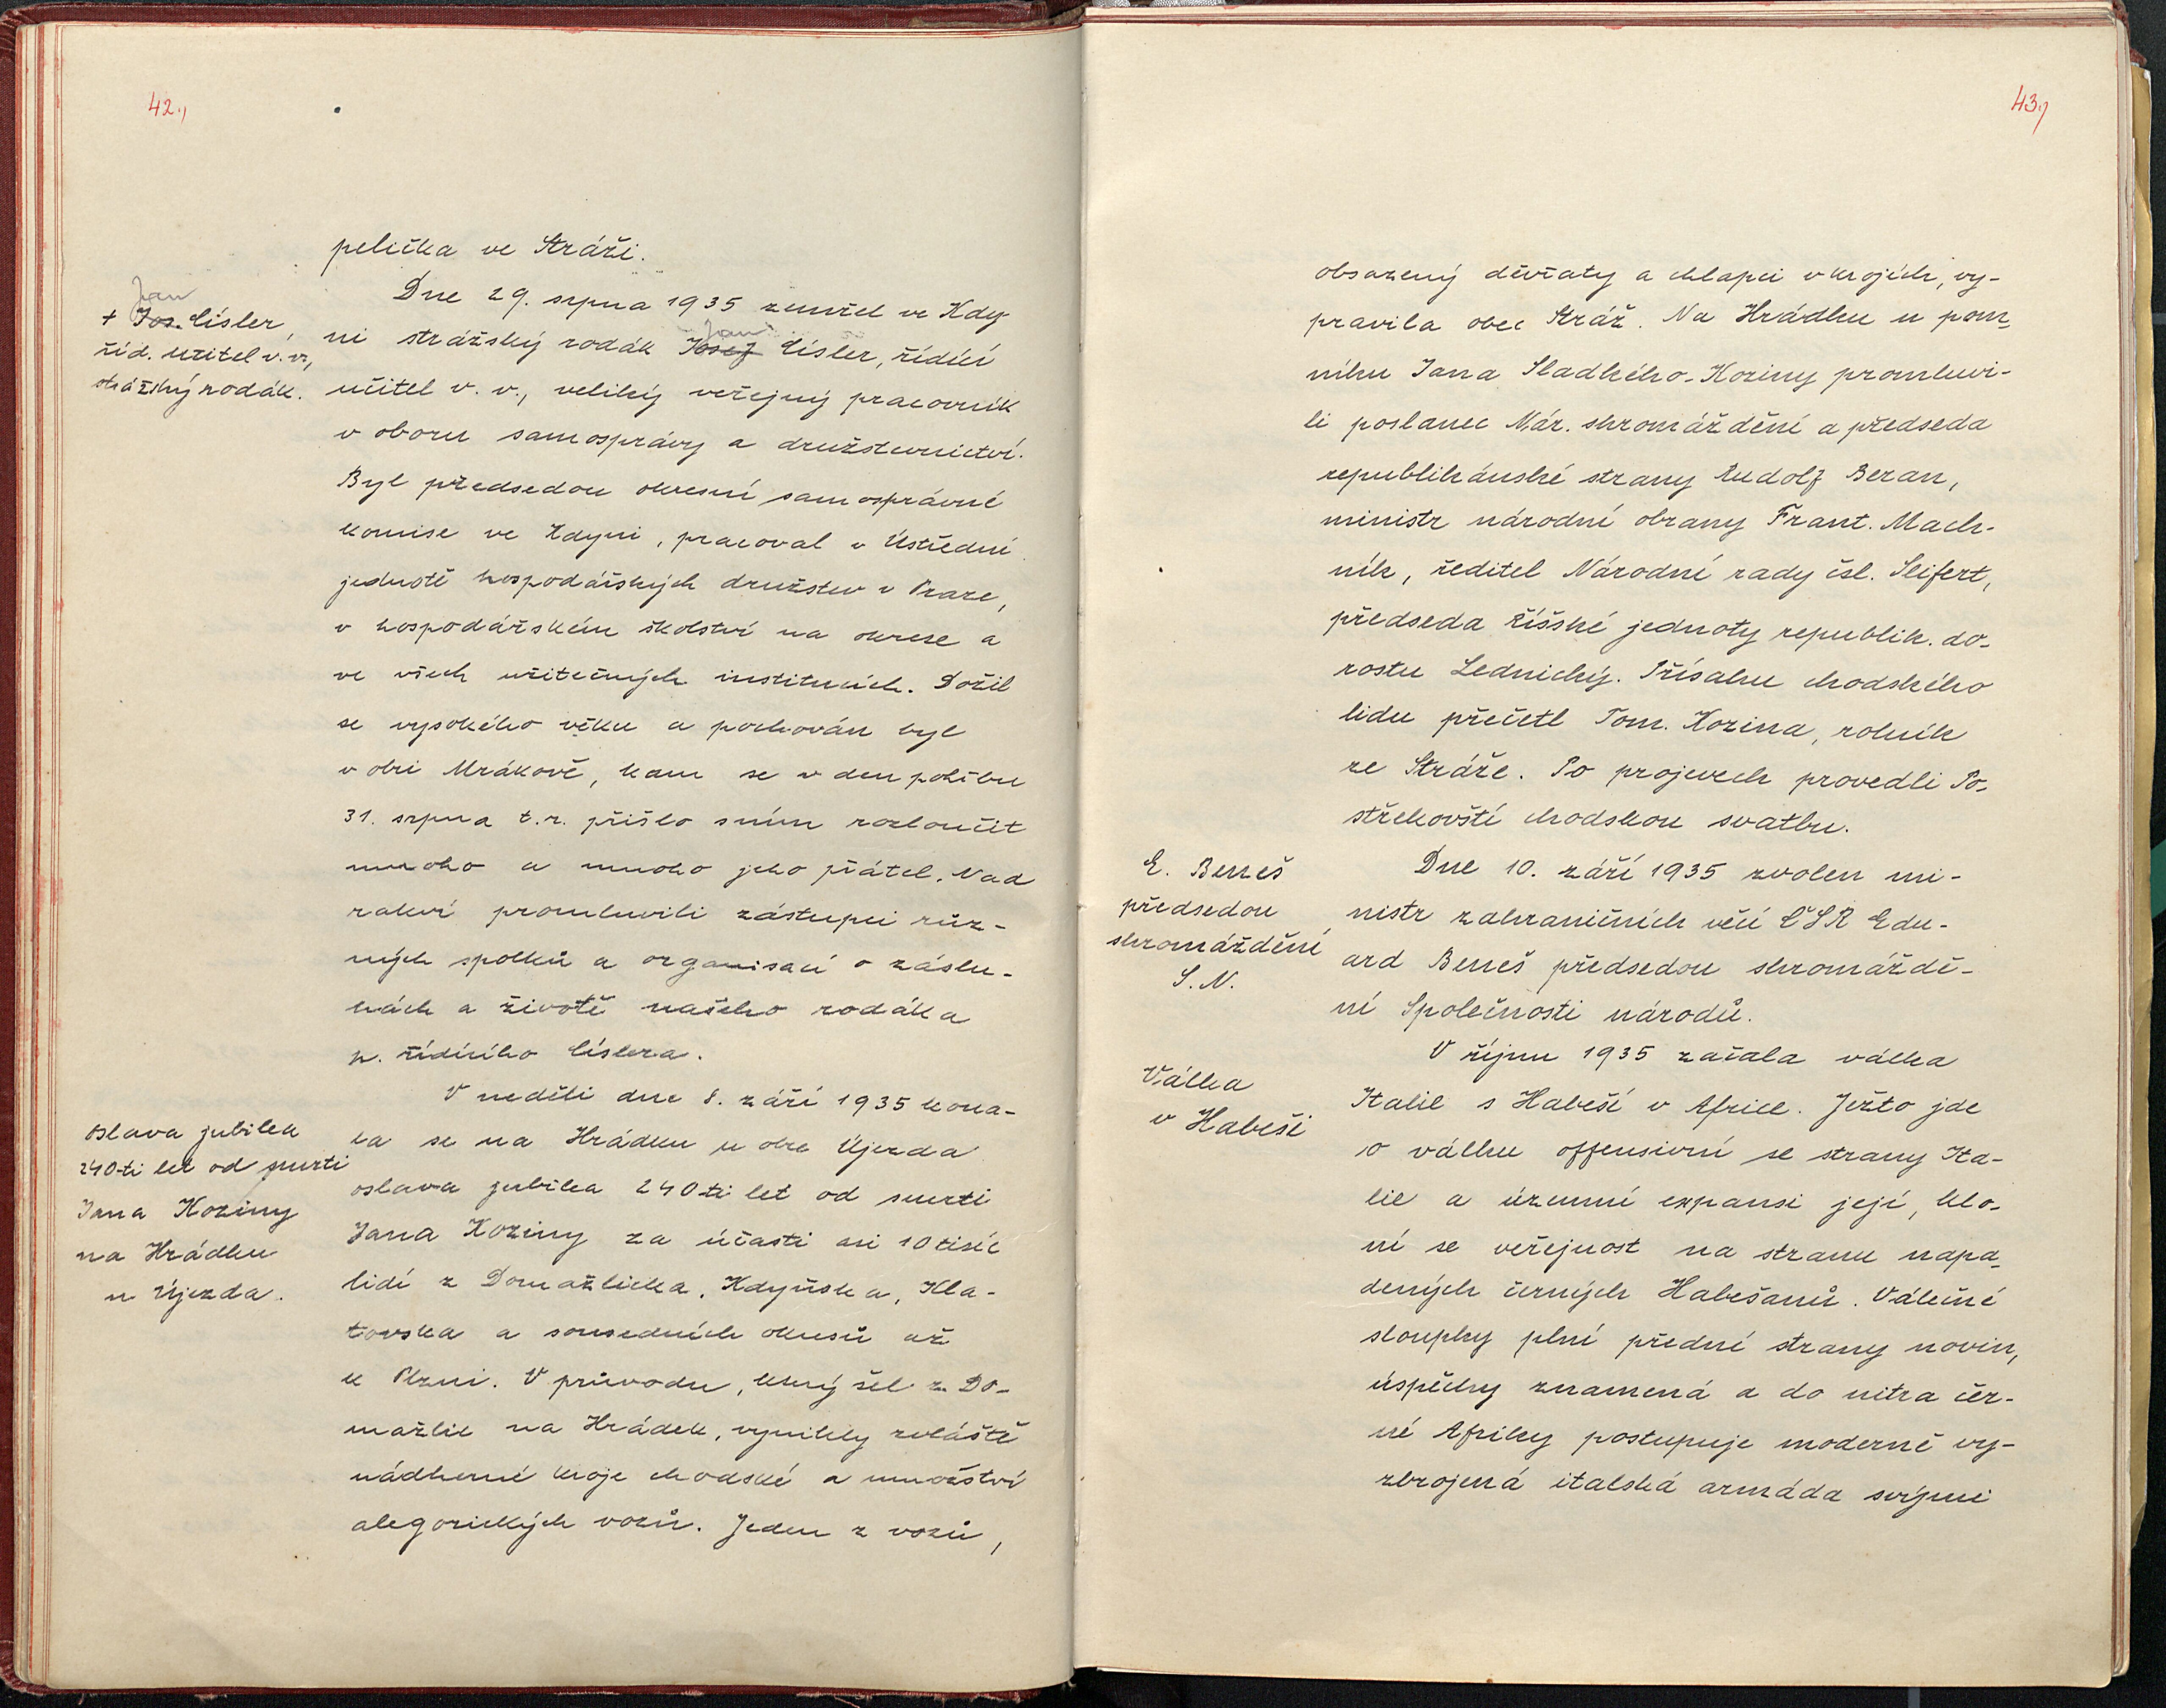 42.,
pelička ve Stráži.
Jan
+ Jos. Císler,
říd. učitel v. v.,
strážský rodák.
Dne 29. srpna 1935 zemřel ve Kdy
Jan
ni strážský rodák Josef Císler, řídící
učitel v. v., veliký veřejný pracovník
v oboru samosprávy a družstevnictví.
Byl předsedou okresní samosprávné
komise ve Kdyni, pracoval v Ústřední
jednotě hospodářských družstev v Praze,
v hospodářském školství na okrese a
ve všech užitečných institucích. Dožil
se vysokého věku a pochován byl
v obci Mrákově, kam se v den pohřbu
31. srpna t.r. přišlo s ním rozloučit
mnoho a mnoho jeho přátel. Nad
rakví promluvili zástupci růz-
ných spolků a organisací o záslu-
hách a životě našeho rodáka
p. řídícího Císlera.
Oslava jubilea
240-ti let od smrti
Jana Koziny
na Hrádku
u Újezda.
V neděli dne 8. září 1935 kona-
la se na Hrádku u obce Újezda
oslava jubilea 240ti let od smrti
Jana Koziny za účasti asi 10 tisíc
lidí z Domažlicka, Kdyňska, Kla-
tovska a sousedních okresů až
k Plzni. V průvodu, který šel z Do-
mažlic na Hrádek, vynikly zvláště
nádherné kroje chodské a množství
alegorických vozů. Jeden z vozů,
43.,
obsazený děvčaty a chlapci v krojích, vy-
pravila obec Stráž. Na Hrádku u pom-
níku Jana Sladkého-Koziny promluvi-
li poslanec Nár. shromáždění a předseda
republikánské strany Rudolf Beran,
ministr národní obrany Frant. Mach-
ník, ředitel Národní rady čsl. Seifert,
předseda říšské jednoty republik. do-
rostu Lednický. Přísahu chodského
lidu přečetl Tom. Kozina, rolník
ze Stráže. Po projevech provedli Po-
střekovští chodskou svatbu.
E. Beneš
předsedou
shromáždění
S. N.
Dne 10. září 1935 zvolen mi-
nistr zahraničních věcí ČSR Edu-
ard Beneš předsedou shromáždě-
ní Společnosti národů.
Válka
v Habeši
V říjnu 1935 začala válka
Italie s Habeší v Africe. Ježto jde
o válku offensivní se strany Ita-
lie a územní expansi její, klo-
ní se veřejnost na stranu napa-
dených černých Habešanů. Válečné
sloupky plní přední strany novin,
úspěchy znamená a do nitra čer-
né Afriky postupuje moderně vy-
zbrojená italská armáda svými